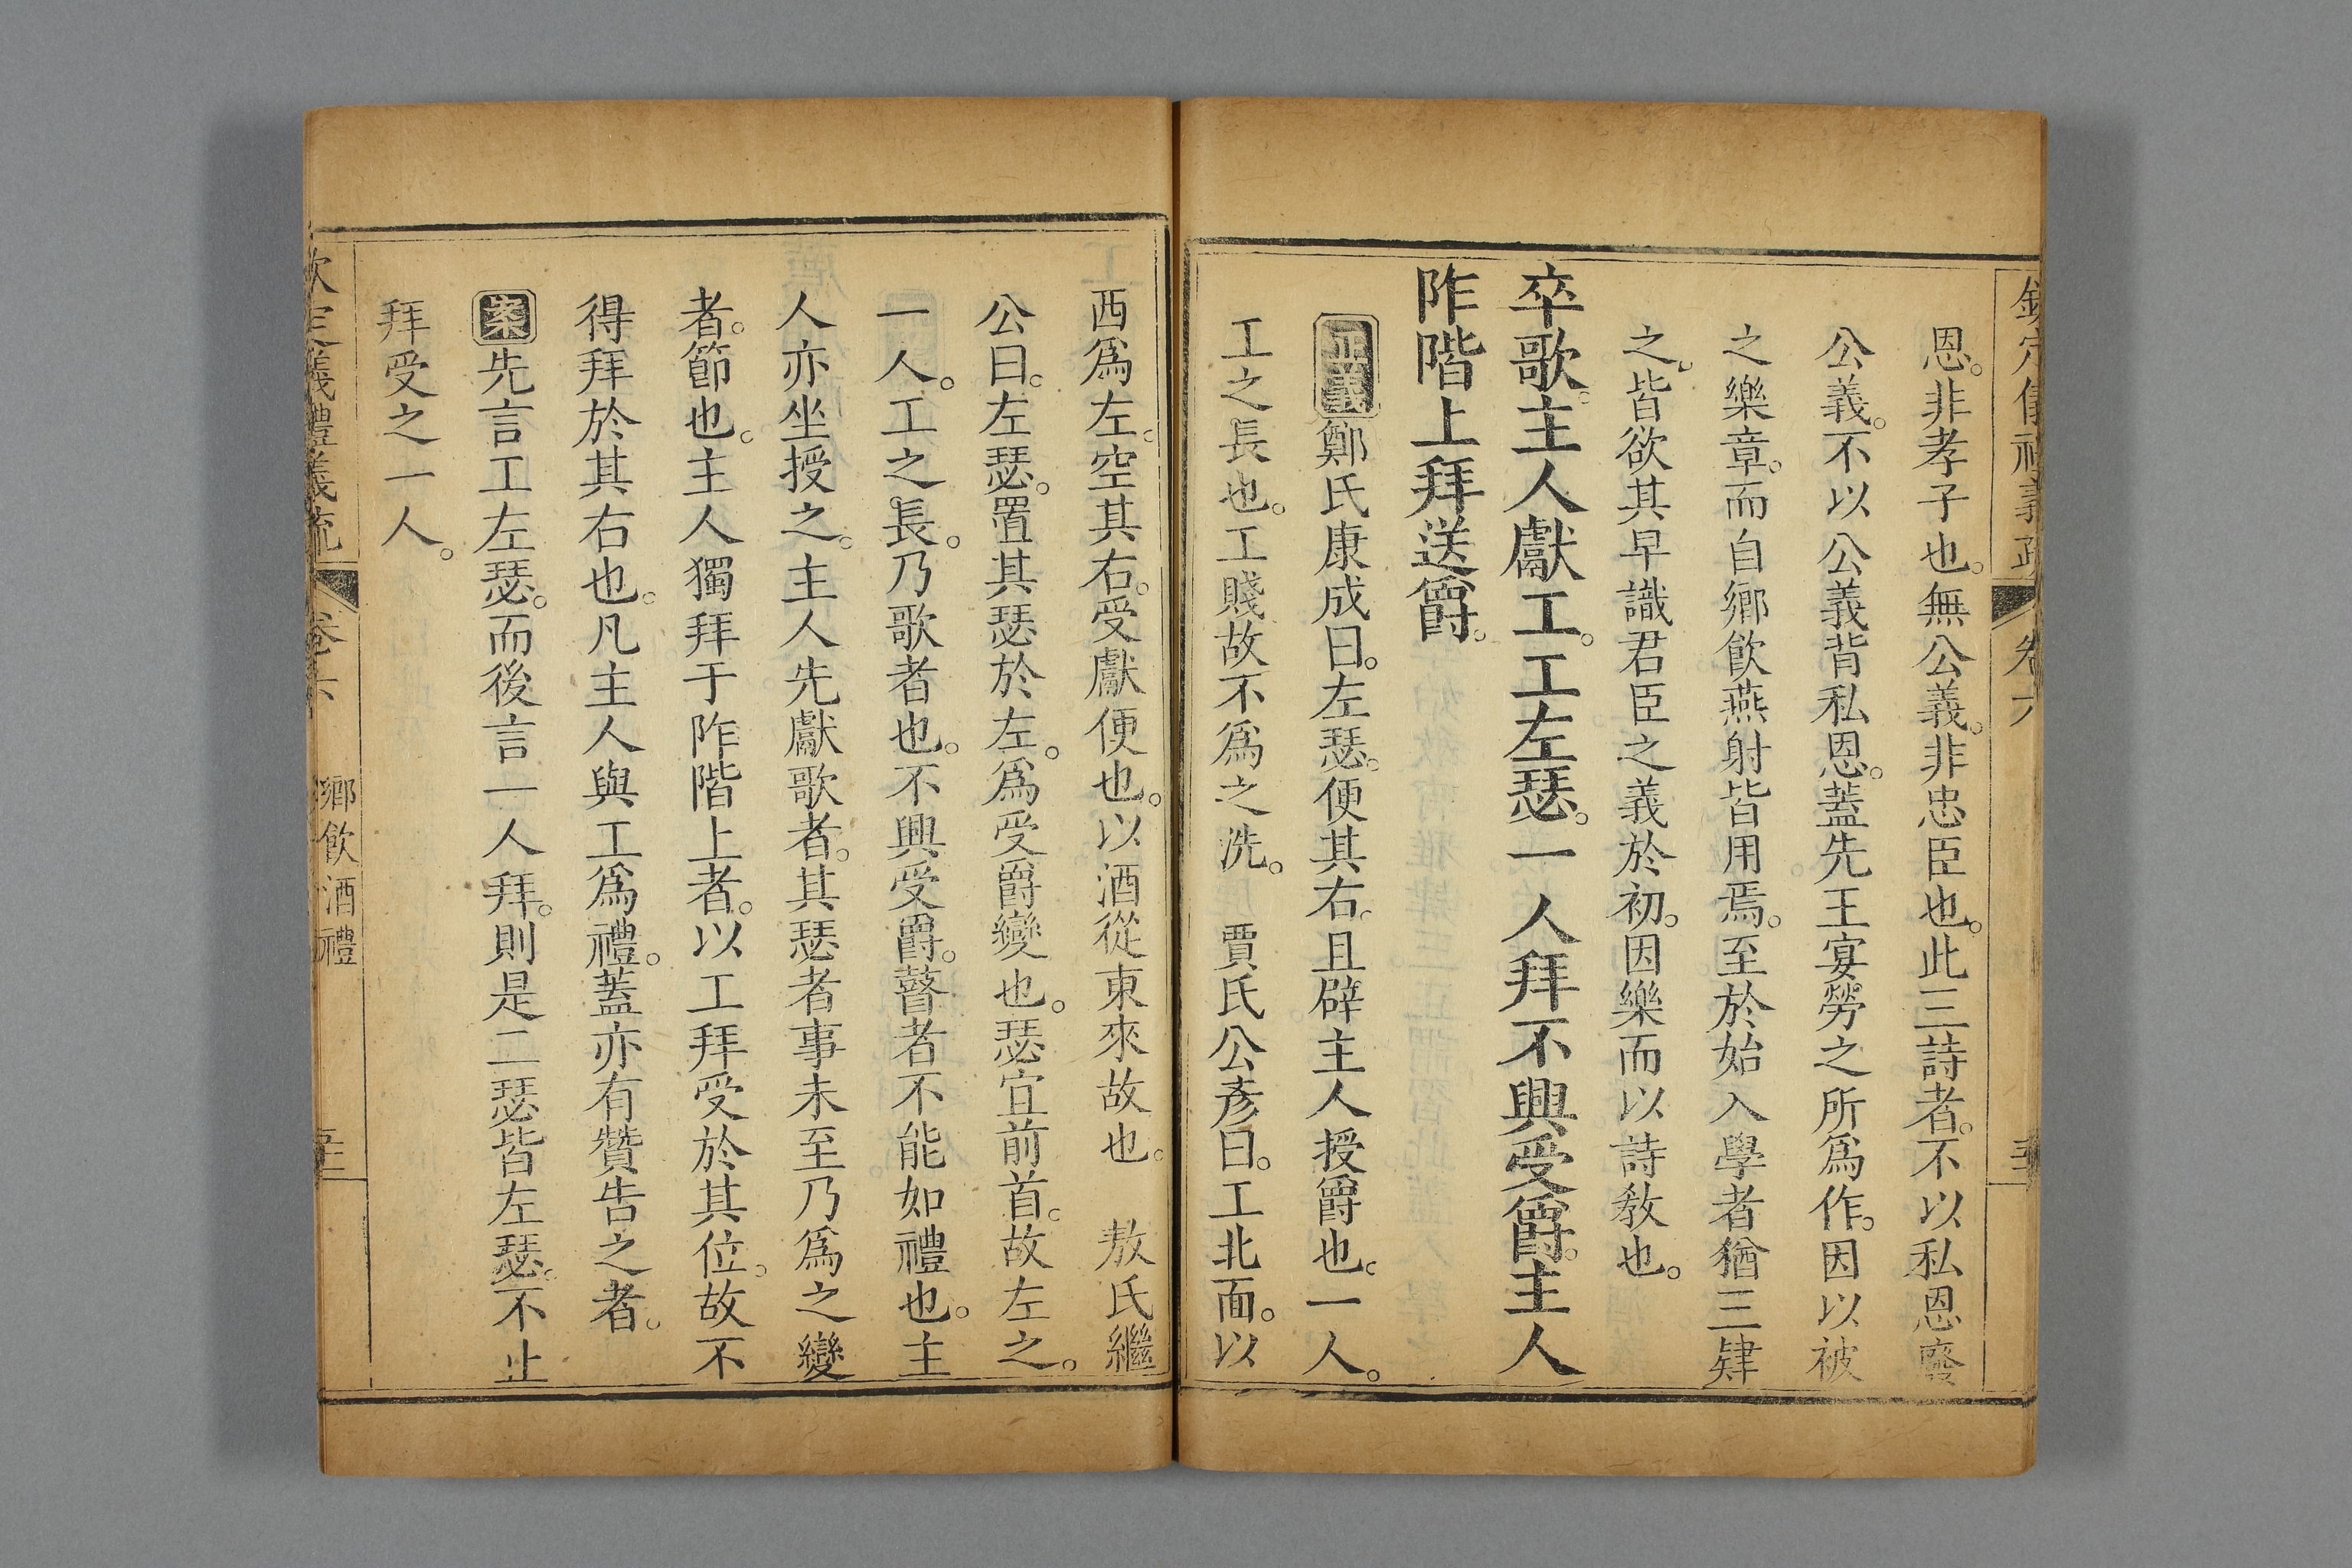 恩。非孝子也。無公義。非忠臣也。此三詩者。不以私恩廢
公義。不以公義背私恩。蓋先王宴勞之所爲作。因以被
之樂章。而自鄉飮燕射皆用焉。至於始入學者猶三肄
之。皆欲其早識君臣之義於初。因樂而以詩敎也。
卒歌。主人獻工。工左瑟。一人拜不興受爵。主人
阼階上拜送爵。
正義鄭氏康成曰。左瑟。便其右。且辟主人授爵也。一人。
工之長也。工賤故不爲之洗。 賈氏公彥曰。工北面。以
西爲左。空其右。受獻便也。以酒從東來故也。 敖氏繼
公曰。左瑟。置其瑟於左。爲受爵變也。瑟宜前首。故左之。
一人。工之長。乃歌者也。不興受爵。瞽者不能如禮也。主
人亦坐授之。主人先獻歌者。其瑟者事未至乃爲之變
者。節也。主人獨拜于阼階上者。以工拜受於其位。故不
得拜於其右也。凡主人與工爲禮。蓋亦有贊告之者。
案先言工左瑟。而後言一人拜。則是二瑟皆左瑟。不止
拜受之一人。
欽定儀禮義疏 卷六 鄉飮酒禮